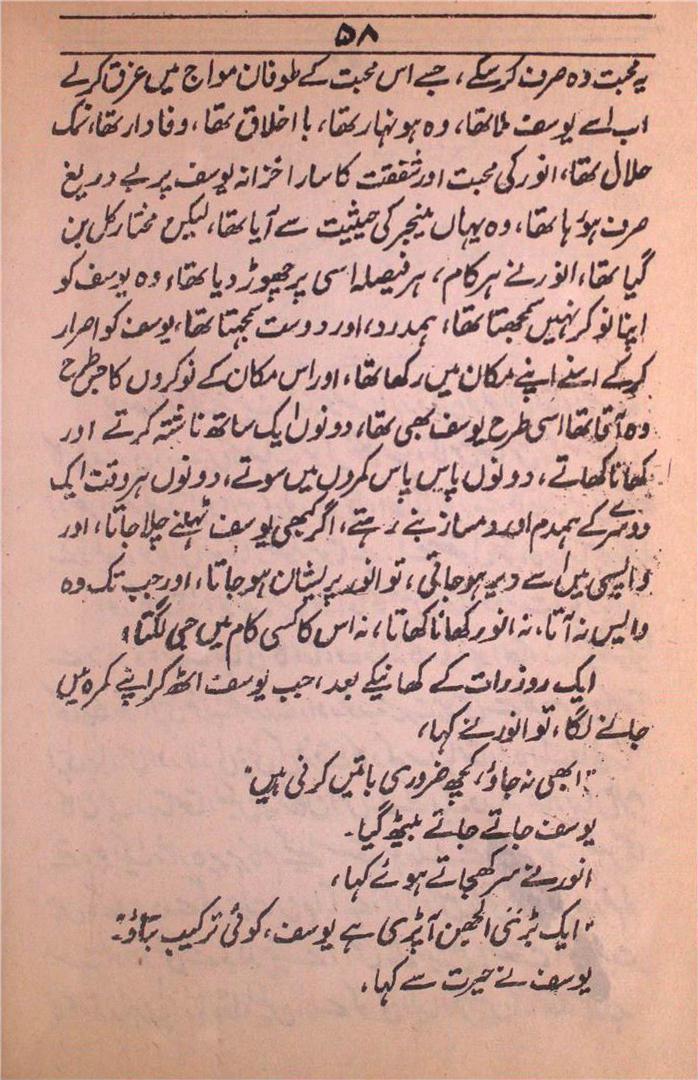 ۵۸
یہ محبت وہ صرف کر سکے، جسے اس محبت کے طوفان مواج میں غرق کرلے
اب اسے یوسف ملا تھا، وہ ہونہار تھا، با اخلاق تھا، وفادار تھا، نمک
حلال تھا، انور کی محبت اور شفقت کا سارا خزانہ یوسف پر بے دریغ
صرف ہو رہا تھا، وہ یہاں مینجر کی حیثیت سے آیا تھا، لیکن مختار کل بن
گیا تھا، انور نے ہر کام، ہر فیصلہ اسی پر چھوڑ دیا تھا، وہ یوسف کو
اپنا نوکر نہیں سمجھتا تھا، ہمدرد، اور دوست سمجہتا تھا، یوسف کو اصرار
کرکے اسنے اپنے مکان میں رکھا تھا، اور اس مکان کے نوکروں کا جس طرح
وہ آقا تھا اسی طرح یوسف بھی تھا، دونوں ایک ساتھ ناشتہ کرتے اور
کھانا کھاتے، دونوں پاس پاس کمروں میں سوتے، دونوں ہر وقت ایک
دوسرے کے ہمدم اور دمساز بنے رہتے، اگر کبھی یوسف ٹہلنے چلا جاتا، اور
واپسی میں اسے دیر ہوجاتی، تو انور پریشان ہوجاتا، اور جب تک وہ
واپس نہ آتا، نہ انور کھانا کھاتا، نہ اس کا کسی کام میں جی لگتا،
ایک روز رات کے کھانیکے بعد، جب یوسف اٹھ کر اپنے کمرہ میں
جانے لگا، تو انور نے کہا،
"ابھی نہ جاؤ، کچھ ضروری باتیں کرنی ہیں"
یوسف جاتے جاتے بیٹھ گیا۔
انور نے سر کھجاتے ہوئے کہا،
"ایک بڑی الجھن آپڑی ہے یوسف، کوئی ترکیب بتاؤ۔"
یوسف نے حیرت سے کہا،